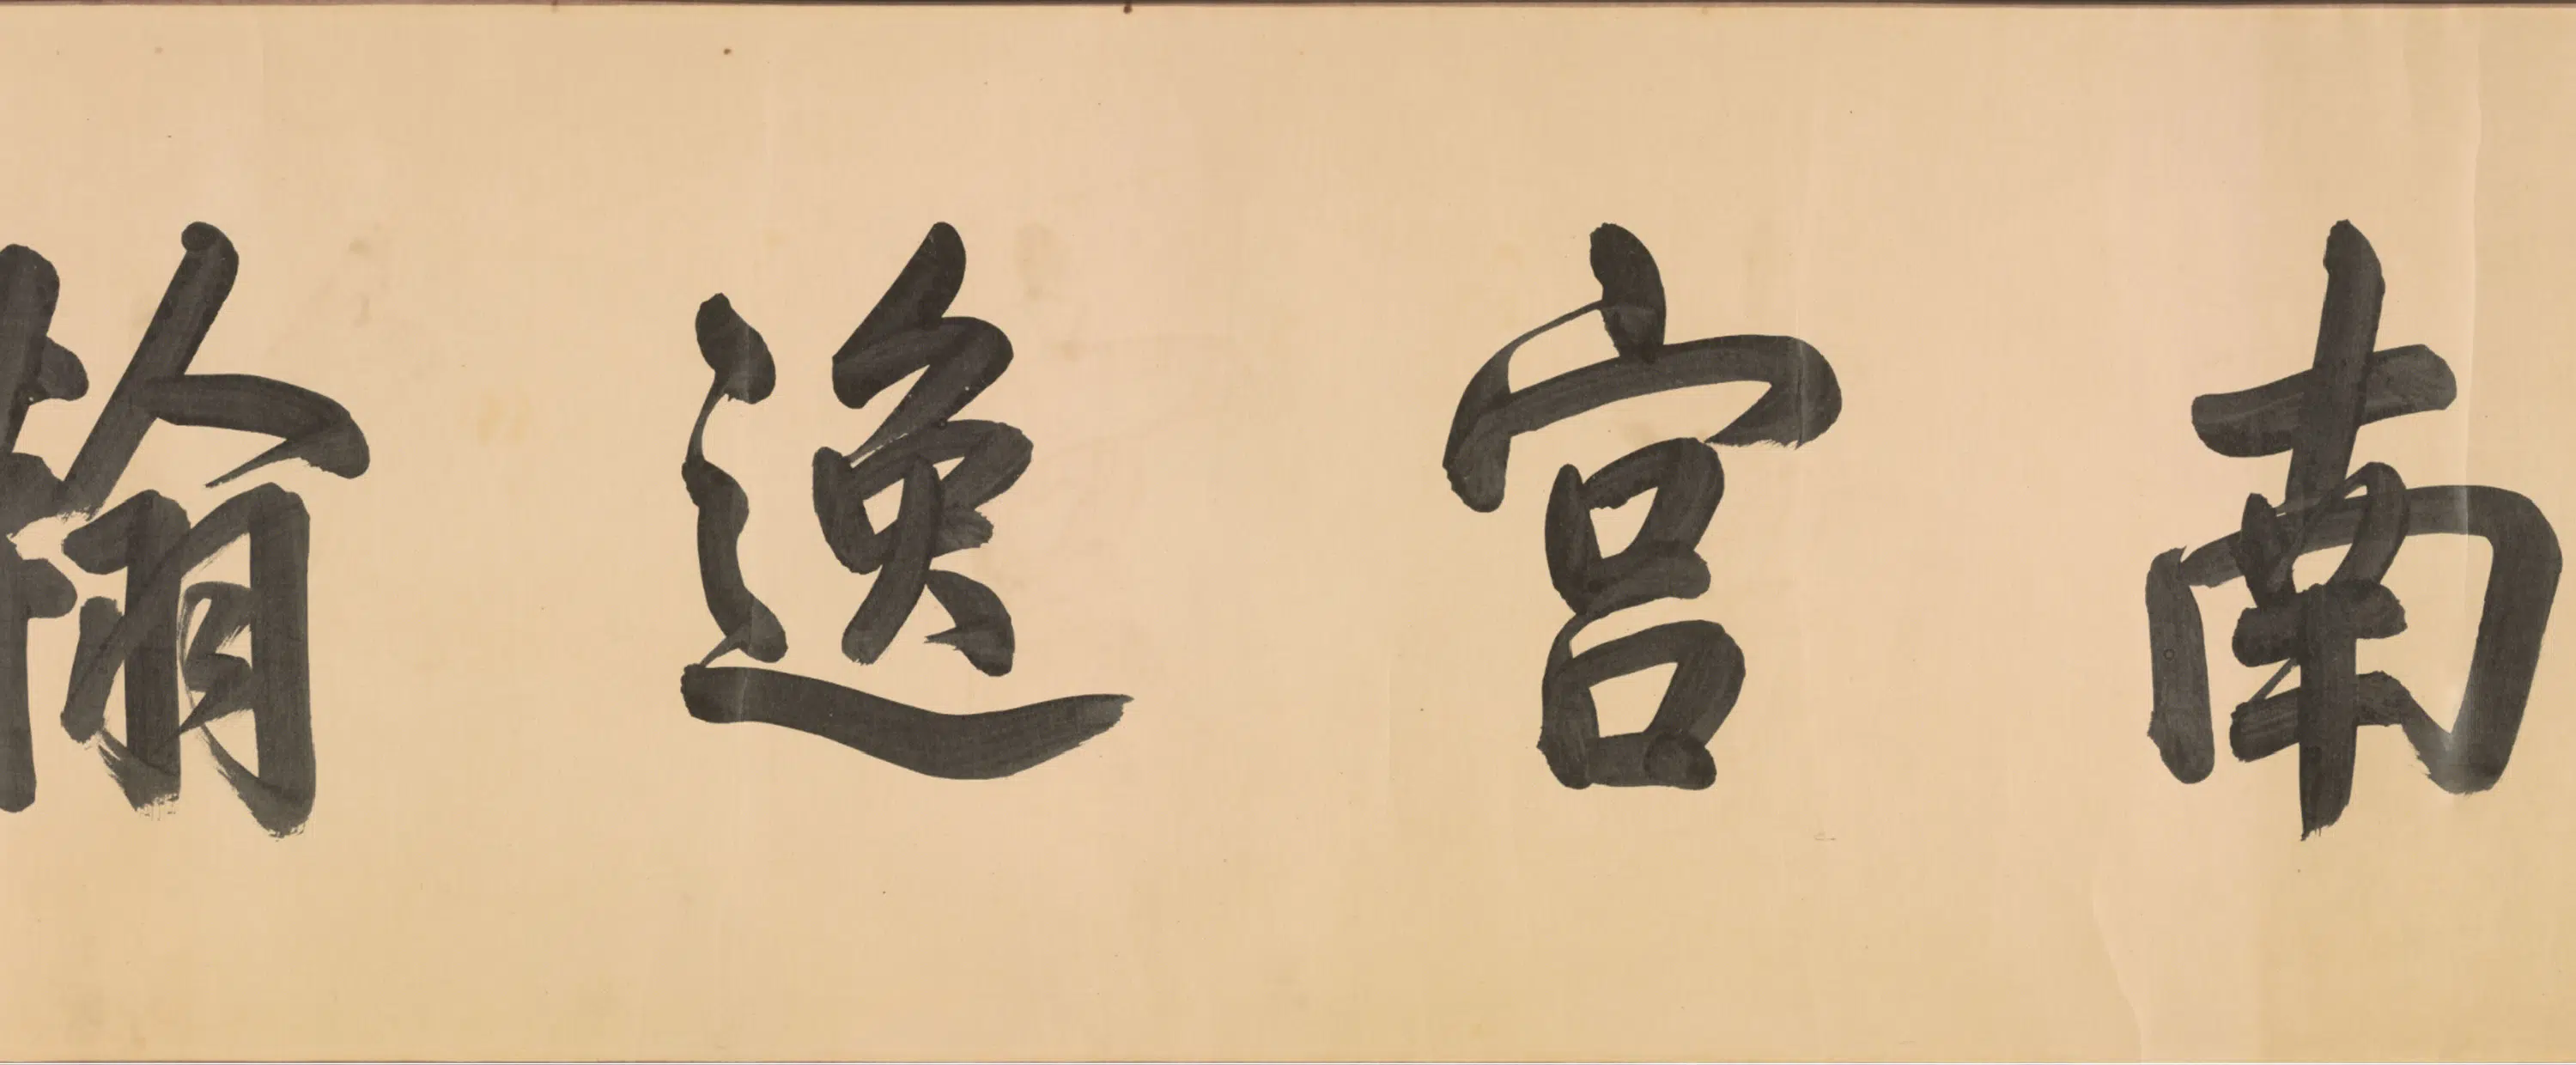 南宮逸翰